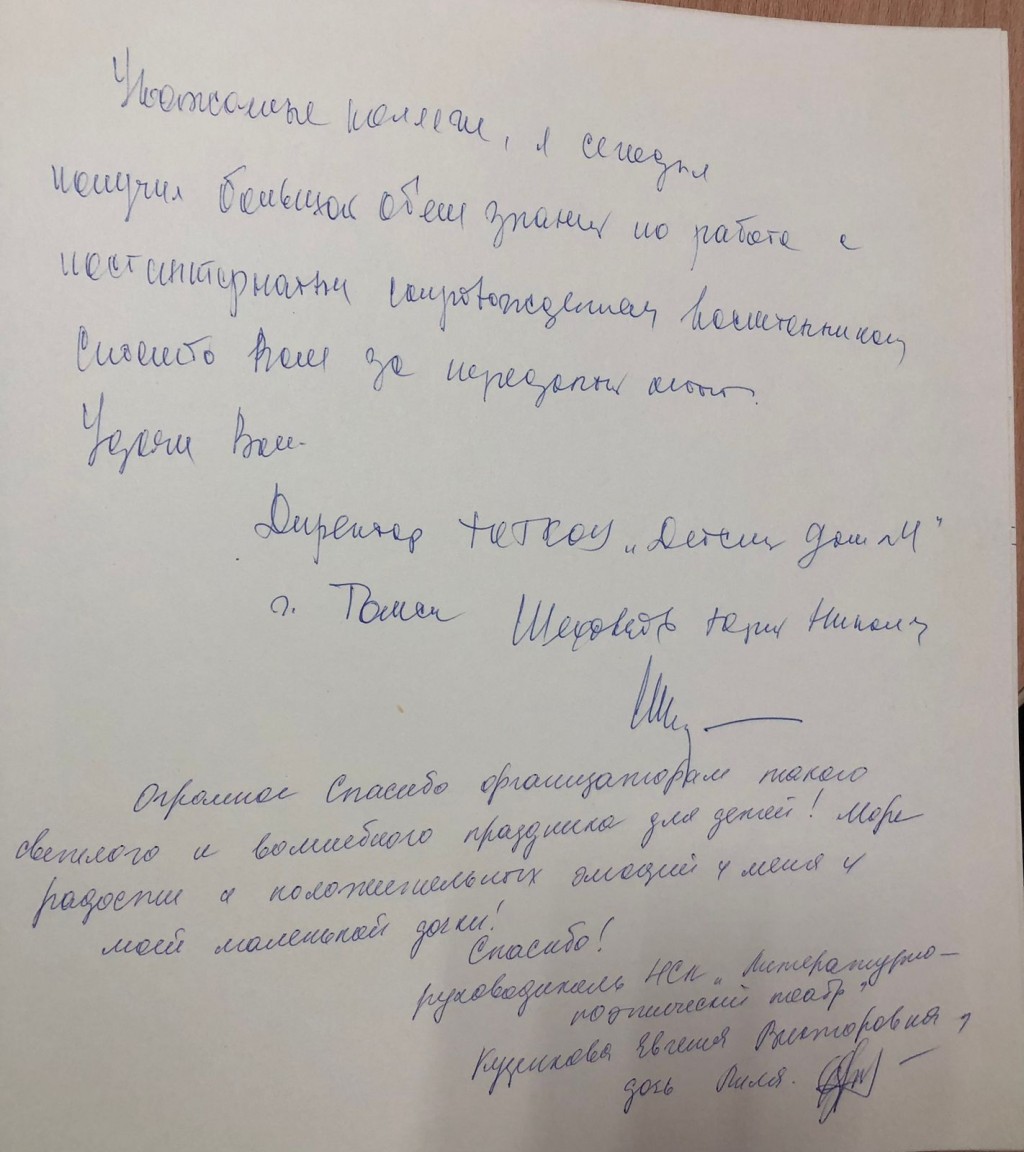 Уважаемые коллеги, я сегодня
получил большой объем знаний по работе с
постинтернатным сопровождением воспитанников
Спасибо Вам за переданный опыт.
Удачи Вам.
Директор "Детский дом №4"
г. Томск Юрий Никол
Огромное Спасибо организаторам такого
светлого и волшебного праздника для детей! Море
радости и положительных эмоций у меня и
моей маленькой дочки!
Спасибо!
руководитель "Литературно-
поэтический театр"
Евгения Викторовна,
дочь